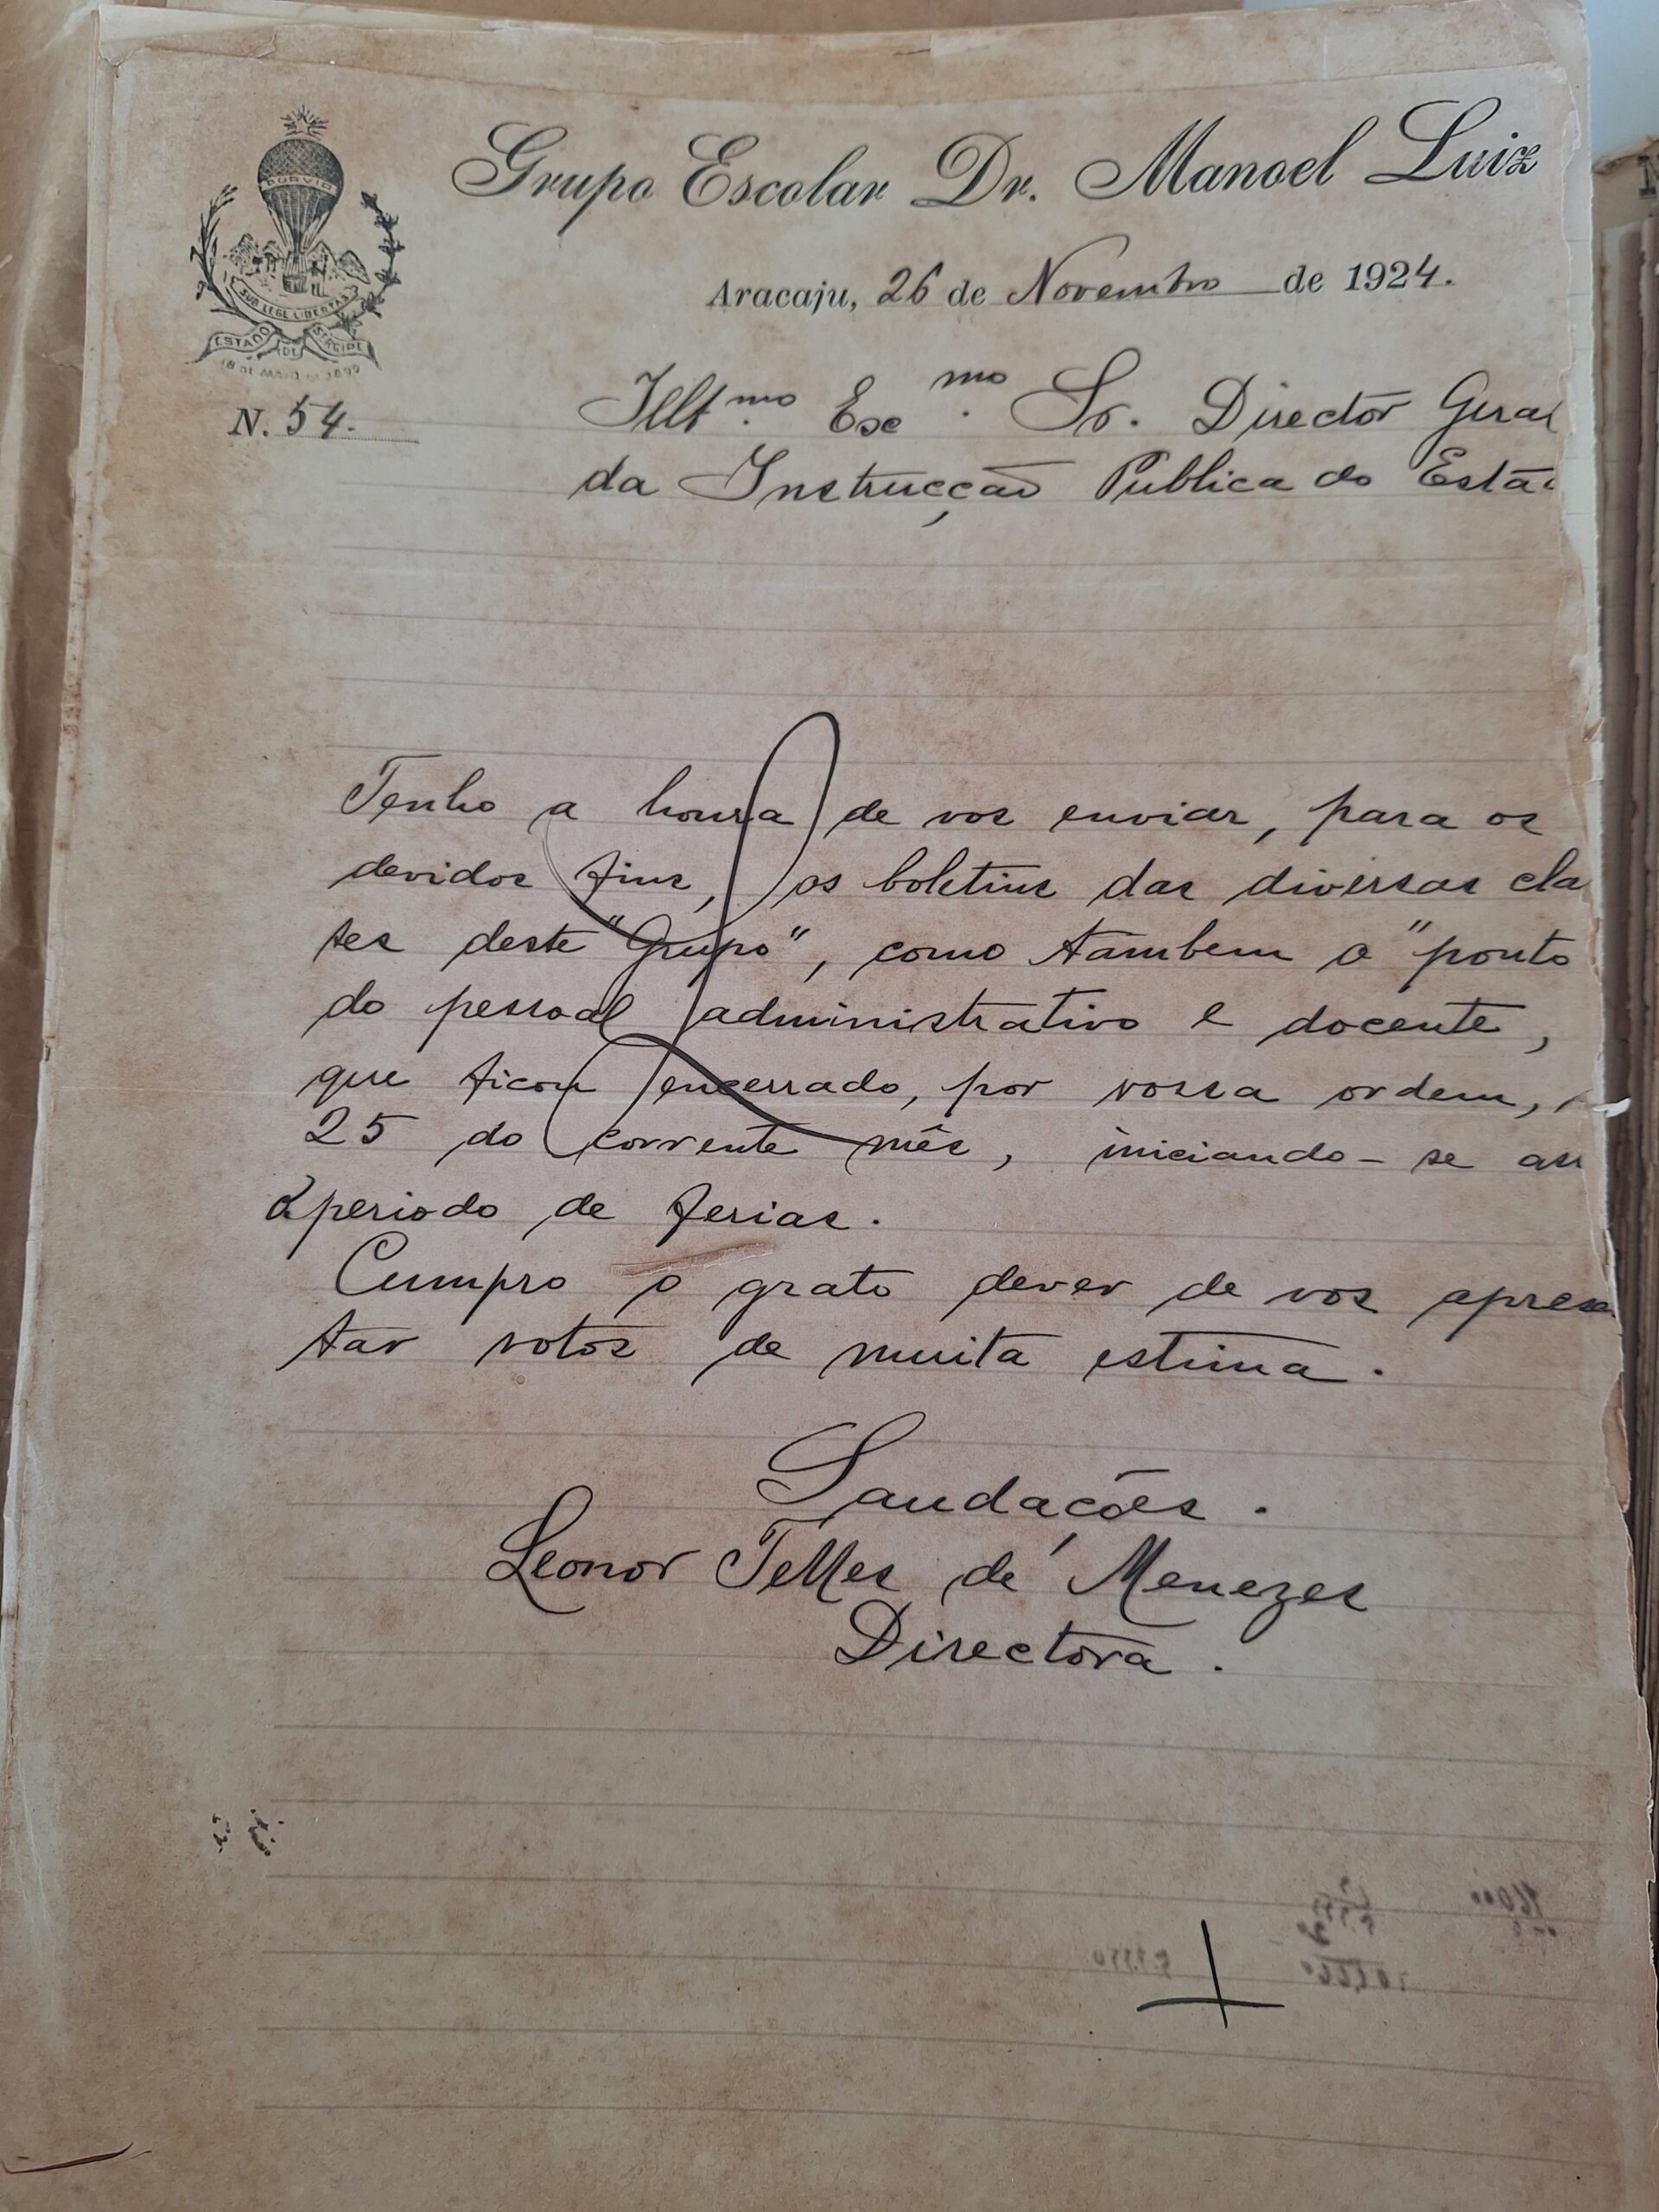 Grupo Escolar Dr. Manoel Luiz
PORVIR
SUB LEGE LIBERTAS
ESTADO DE SERGIPE
18 DE MAIO DE 1892
Aracaju, 26 de Novembro de 1924.
N. 54.
Illt.mo Exc.mo Sr. Director Geral
da Instrucção Publica do Esta
Tenho a honra de vos enviar, para os
devidos fins, os boletins das diversas cla
ses deste "Grupo", como tambem o "ponto
do pessoal administrativo e docente,
que ficou encerrado, por vossa ordem,
25 do corrente mês, iniciando-se as
o periodo de ferias.
Cumpro o grato dever de vos apresen
tar votos de muita estima.
Saudações.
Leonor Telles de Menezes
Directora.